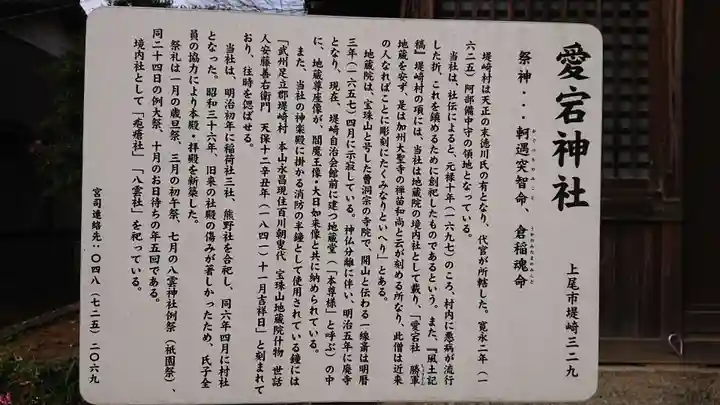 愛宕神社
上尾市堤崎三二九
祭神・・軻遇突智命、倉稲魂命
かぐつちのみこと
うかのみたまのみこと
堤崎村は天正の末徳川氏の有となり、代官が所轄した。寛永二年（一
六二五）阿部備中守の領地となっている。
当社は、社伝によると、元禄十年（一六九七）のころ、村内に悪病が流行
した折、これを鎮めるために創祀したものであるという。また、『風土記
稿』堤崎村の項には、当社は地蔵院の境内社として載り、「愛宕社 勝軍
地蔵を安ず、是は加州大聖寺の禅苗和尚と云が刻める所なり、此僧は近来
の人なればことに彫刻にたくみなりといへり」とある。
地蔵院は、宝珠山と号した曹洞宗の寺院で、開山と伝わる一縁喜は明暦
三年（一六五七）四月に示寂している。神仏分離に伴い、明治五年に廃寺
となり、現在、堤崎自治会館前に建つ地蔵堂（「本尊様」と呼ぶ）の中
に、地蔵尊座像が、閻魔王像・大日如来像と共に納められている。
また、当社の神楽殿に掛かる消防の半鐘として使用されている鐘には
「武州足立郡堤崎村 本山永昌現住百川朝叟代 宝珠山地蔵院什物 世話
人安藤善右衛門 天保十二辛丑年（一八四一）十一月吉祥日」と刻まれて
おり、往時を偲ばせる。
当社は、明治初年に稲荷社三社、熊野社を合祀し、同六年四月に村社
となった。昭和三十六年、旧来の社殿の傷みが著しかったため、氏子全
員の協力により本殿・拝殿を新築した。
祭礼は一月の歳旦祭、三月の初午祭、七月の八雲神社例祭（祇園祭）、
同二十四日の例大祭、十月のお日待ちの年五回である。
境内社として「疱瘡社」「八雲社」を祀っている。
宮司連絡先：〇四八（七二五）二〇六九